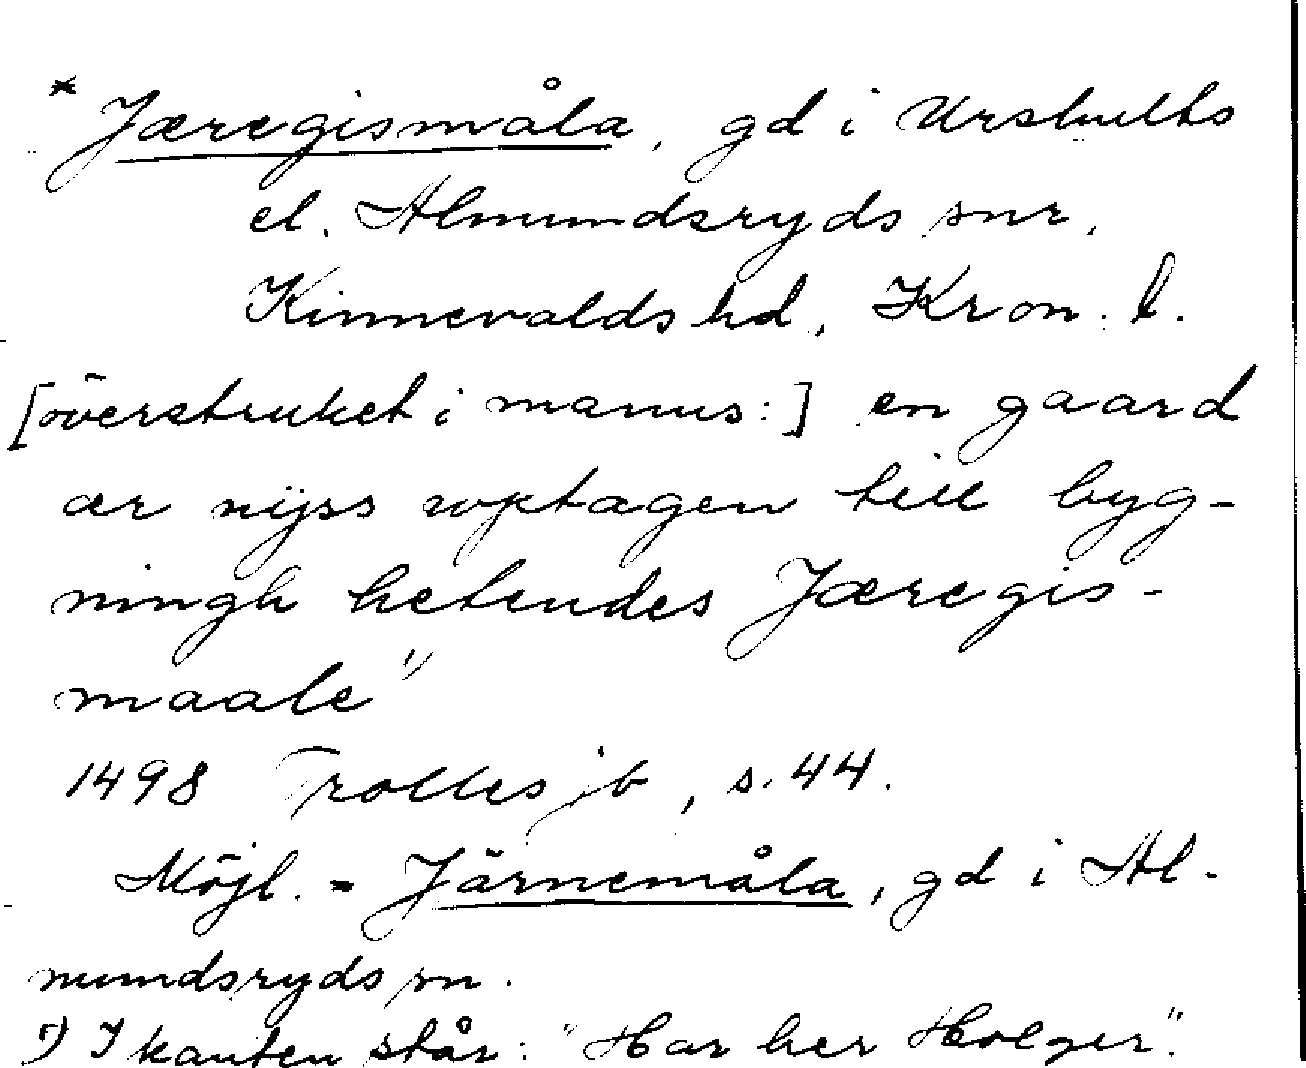 * Jæregismåla, gd i Urshults
el. Almundsryds snr,
Kinnevalds hd, Kron. l.
[överstruket i manus:] en gaard
ær nyss wptagen till byg-
ningh hetendes Jæregis-
maale"
1498 Trolles jb, s. 44.
Möjl. = Järnemåla, gd i Al-
mundsryds sn.
1) I kanten står: "Har her Holger".